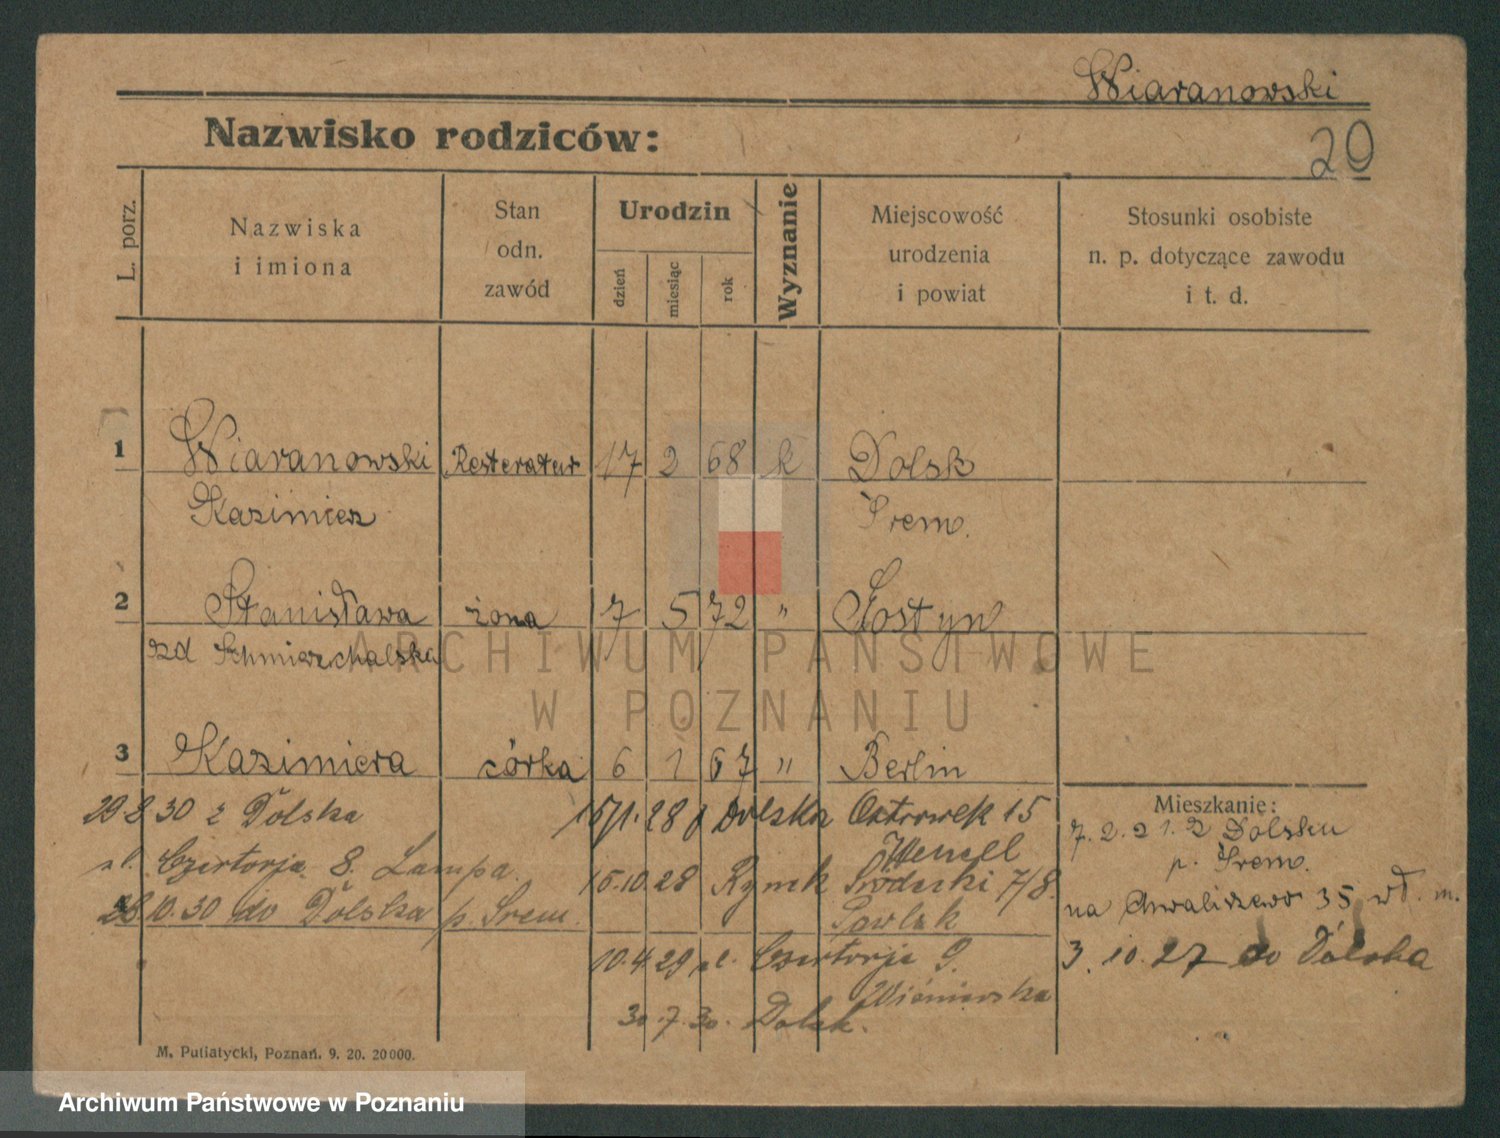 Wiaranowski
Nazwisko rodziców:
20
L. porz.
Nazwiska
i imiona
Stan
odn.
zawód
Urodzin
dzień
miesiąc
rok
Wyznanie
Miejscowość
urodzenia
i powiat
Stosunki osobiste
n. p. dotyczące zawodu
i t. d.
1 Wiaranowski Resteratur 17 2 68 k Dolsk
Kazimierz Śrem.
2 Stanisława żona 7 5 72 " Gostyn
zd
3 Kazimiera córka 6 1 67 " Berlin
Mieszkanie:
29 8 30 z Dolska
15/1. 28 Dolska Ostrowek 15
7. 2. 21. z Dolsku
p. Śrem.
ul. Czartorja 8. Lampa.
15.10.28 Rynek Śródecki 7/8.
Pawlak
na Chwaliszewo 35 wł. m.
28 10. 30 do Dolska p. Śrem.
10.4.29 ul. Czartorja 9.
Wiśniewska
3. 10. 27 do Dolska
30. 7. 30. Dolsk.
M. Putiatycki, Poznań. 9. 20. 20000.
ARCHIWUM PAŃSTWOWE
W POZNANIU
Archiwum Państwowe w Poznaniu